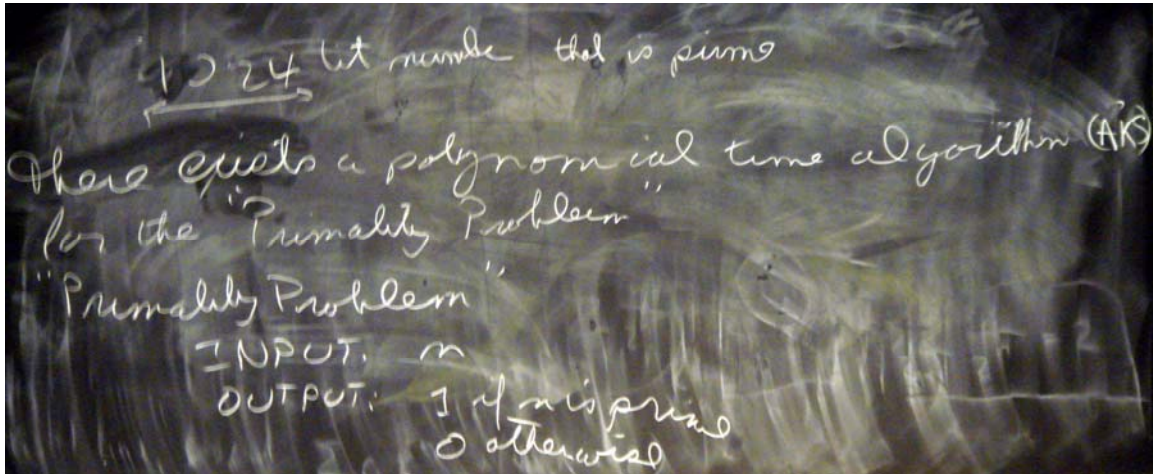 1024 bit number that is prime
There exists a polynomial time algorithm (AKS)
for the "Primality Problem"
"Primality Problem"
INPUT: n
OUTPUT: 1 if n is prime
0 otherwise